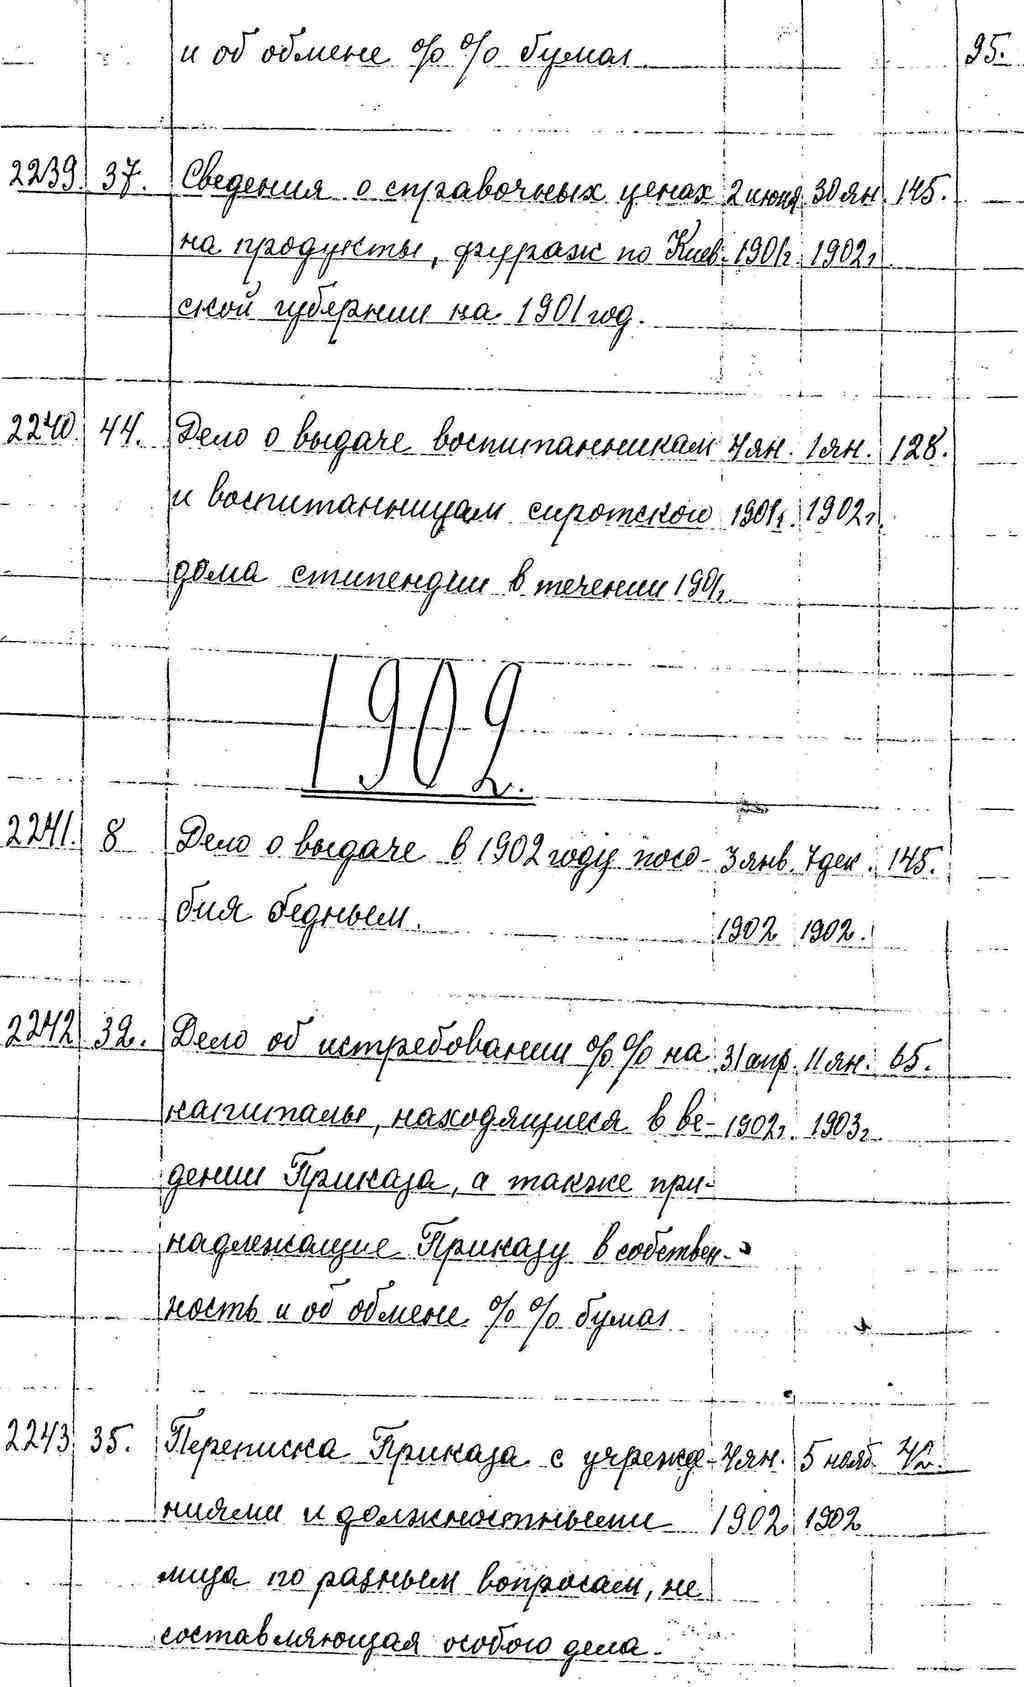 и об обмене %% бумаг 95.
2239. 37. Сведения о справочных ценах 2 июня 30 ян. 145.
на продукты, фураж по Киев- 1901г. 1902г.
ской губернии на 1901 год.
2240. 44. Дело о выдаче воспитанникам 4 ян. 1 ян. 128.
и воспитанницам сиротского 1901г. 1902г.
дома стипендии в течении 1901г.
1902.
2241. 8 Дело о выдаче в 1902 году посо- 3 янв. 7 дек. 145.
бия бедным. 1902 1902.
2242 32. Дело об истребовании %% на 31 апр. 11 ян. 65.
капиталы, находящиеся в ве- 1902г. 1903г
дении Приказа, а также при-
надлежащие Приказу в собствен-
ность и об обмене %% бумаг
2243 35. Переписка Приказа с учрежде- 4 ян. 5 нояб.
ниями и должностными 1902 1902
лица по разным вопросам, не
составляющая особого дела.